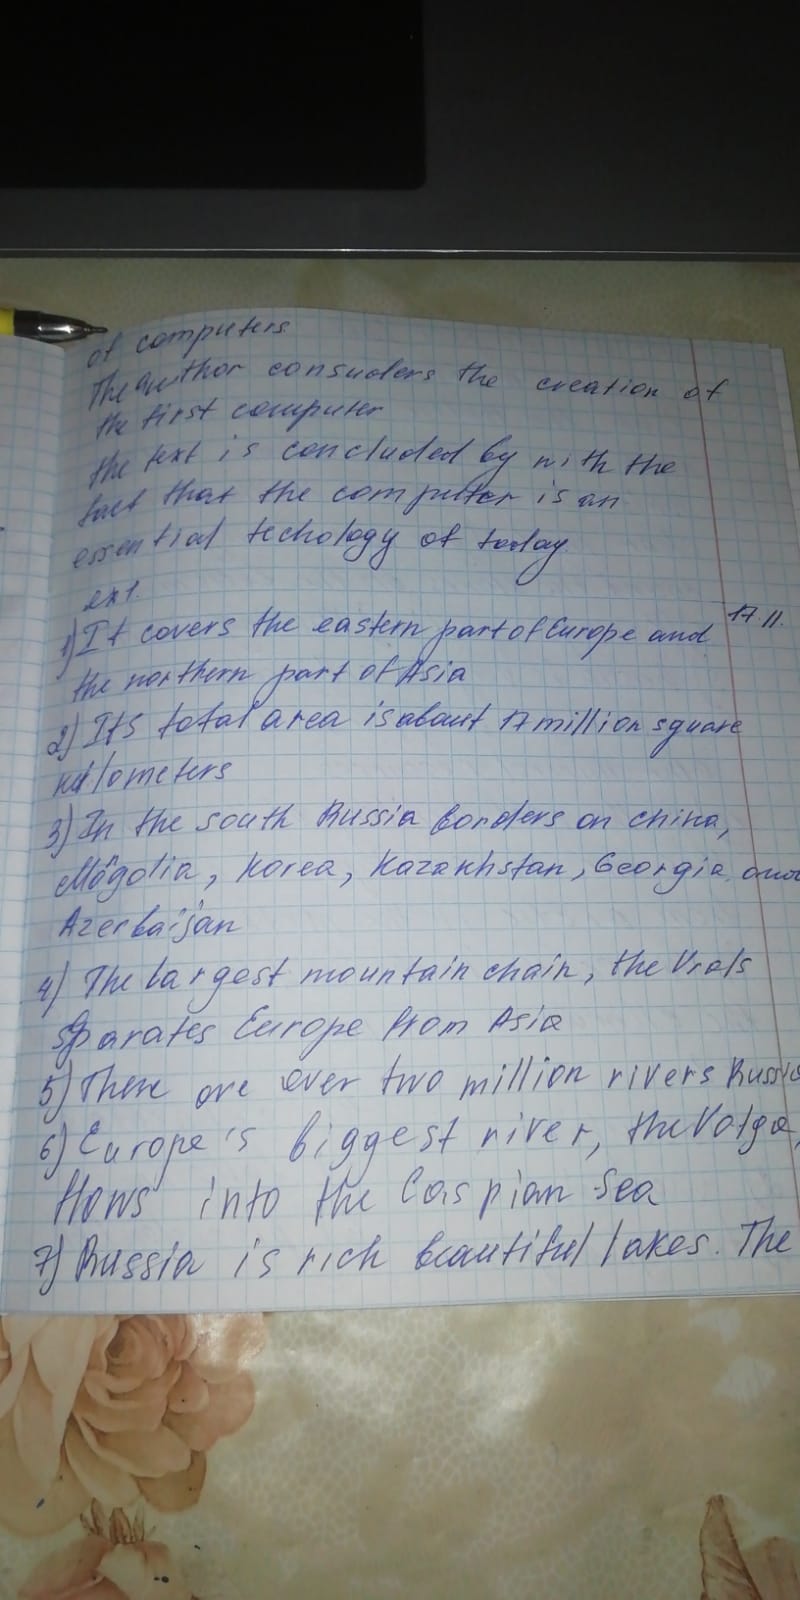 of computers
The author consuders the creation of
the first computer
the text is concluded by with the
fact that the computer is an
essential techology of today.
ex1.
17.11.
1) It covers the eastern part of Europe and
the northern part of Asia
2) Its total area is about 17 million square
kilometers
3) In the south Russia borders on china,
Mogolia, Korea, Kazakhstan, Georgia and
Azerbaijan
4) The largest mountain chain, the Urals
sparates Europe from Asia
5) There are over two million rivers Russia
6) Europe's biggest river, the Volga,
flows into the Caspian Sea
7) Russia is rich beautiful lakes. The